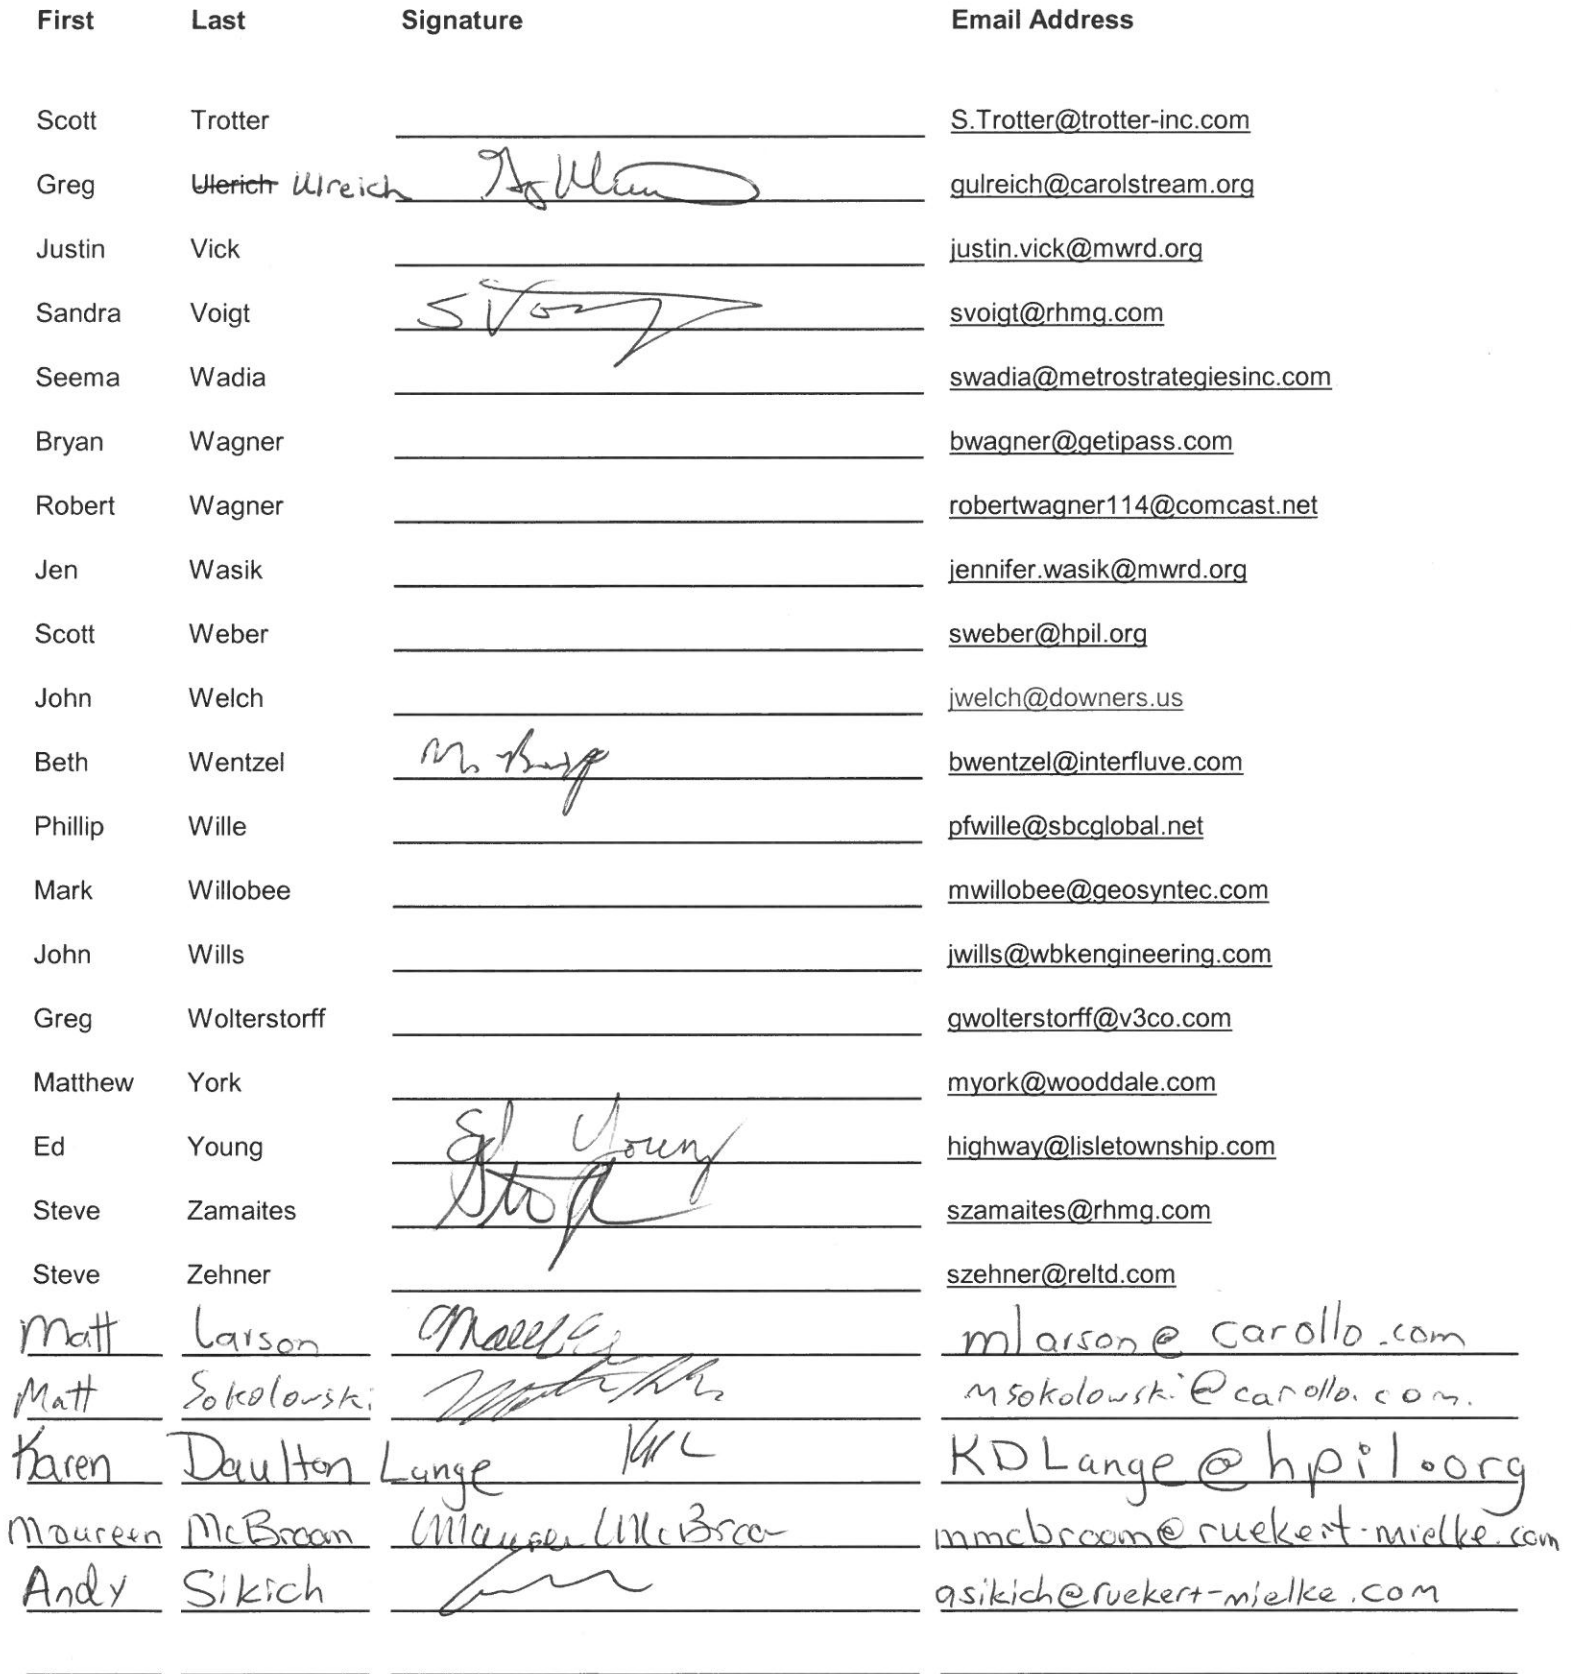 First Last Signature Email Address
Scott Trotter S.Trotter@trotter-inc.com
Greg Ulerich Ulreich gulreich@carolstream.org
Justin Vick justin.vick@mwrd.org
Sandra Voigt svoigt@rhmg.com
Seema Wadia swadia@metrostrategiesinc.com
Bryan Wagner bwagner@getipass.com
Robert Wagner robertwagner114@comcast.net
Jen Wasik jennifer.wasik@mwrd.org
Scott Weber sweber@hpil.org
John Welch jwelch@downers.us
Beth Wentzel bwentzel@interfluve.com
Phillip Wille pfwille@sbcglobal.net
Mark Willobee mwillobee@geosyntec.com
John Wills jwills@wbkengineering.com
Greg Wolterstorff gwolterstorff@v3co.com
Matthew York myork@wooddale.com
Ed Young Ed Young highway@lisletownship.com
Steve Zamaites szamaites@rhmg.com
Steve Zehner szehner@reltd.com
Matt Larson mlarson@carollo.com
Matt Sokolowski msokolowski@carollo.com.
Karen Daulton Lange KDLange@hpil.org
Maureen McBroom Maureen McBroo mmcbroom@ruekert-mielke.com
Andy Sikich asikich@ruekert-mielke.com